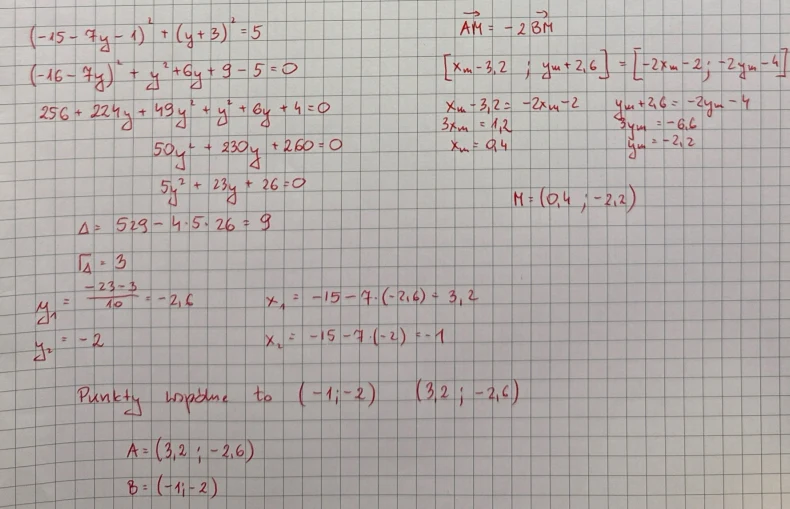 (-15 - 7y - 1)² + (y+3)² = 5
(-16 - 7y)² + y² + 6y + 9 - 5 = 0
256 + 224y + 49y² + y² + 6y + 4 = 0
50y² + 230y + 260 = 0
5y² + 23y + 26 = 0
Δ = 529 - 4·5·26 = 9
√Δ = 3
y₁ = (-23-3)/10 = -2,6
x₁ = -15 - 7·(-2,6) = 3,2
y₂ = -2
x₂ = -15 - 7·(-2) = -1
Punkty wspólne to (-1;-2) (3,2 ; -2,6)
A = (3,2 ; -2,6)
B = (-1;-2)
AM→ = -2BM→
[xₘ - 3,2 ; yₘ + 2,6] = [-2xₘ - 2 ; -2yₘ - 4]
xₘ - 3,2 = -2xₘ - 2
3xₘ = 1,2
xₘ = 0,4
yₘ + 2,6 = -2yₘ - 4
3yₘ = -6,6
yₘ = -2,2
M = (0,4 ; -2,2)